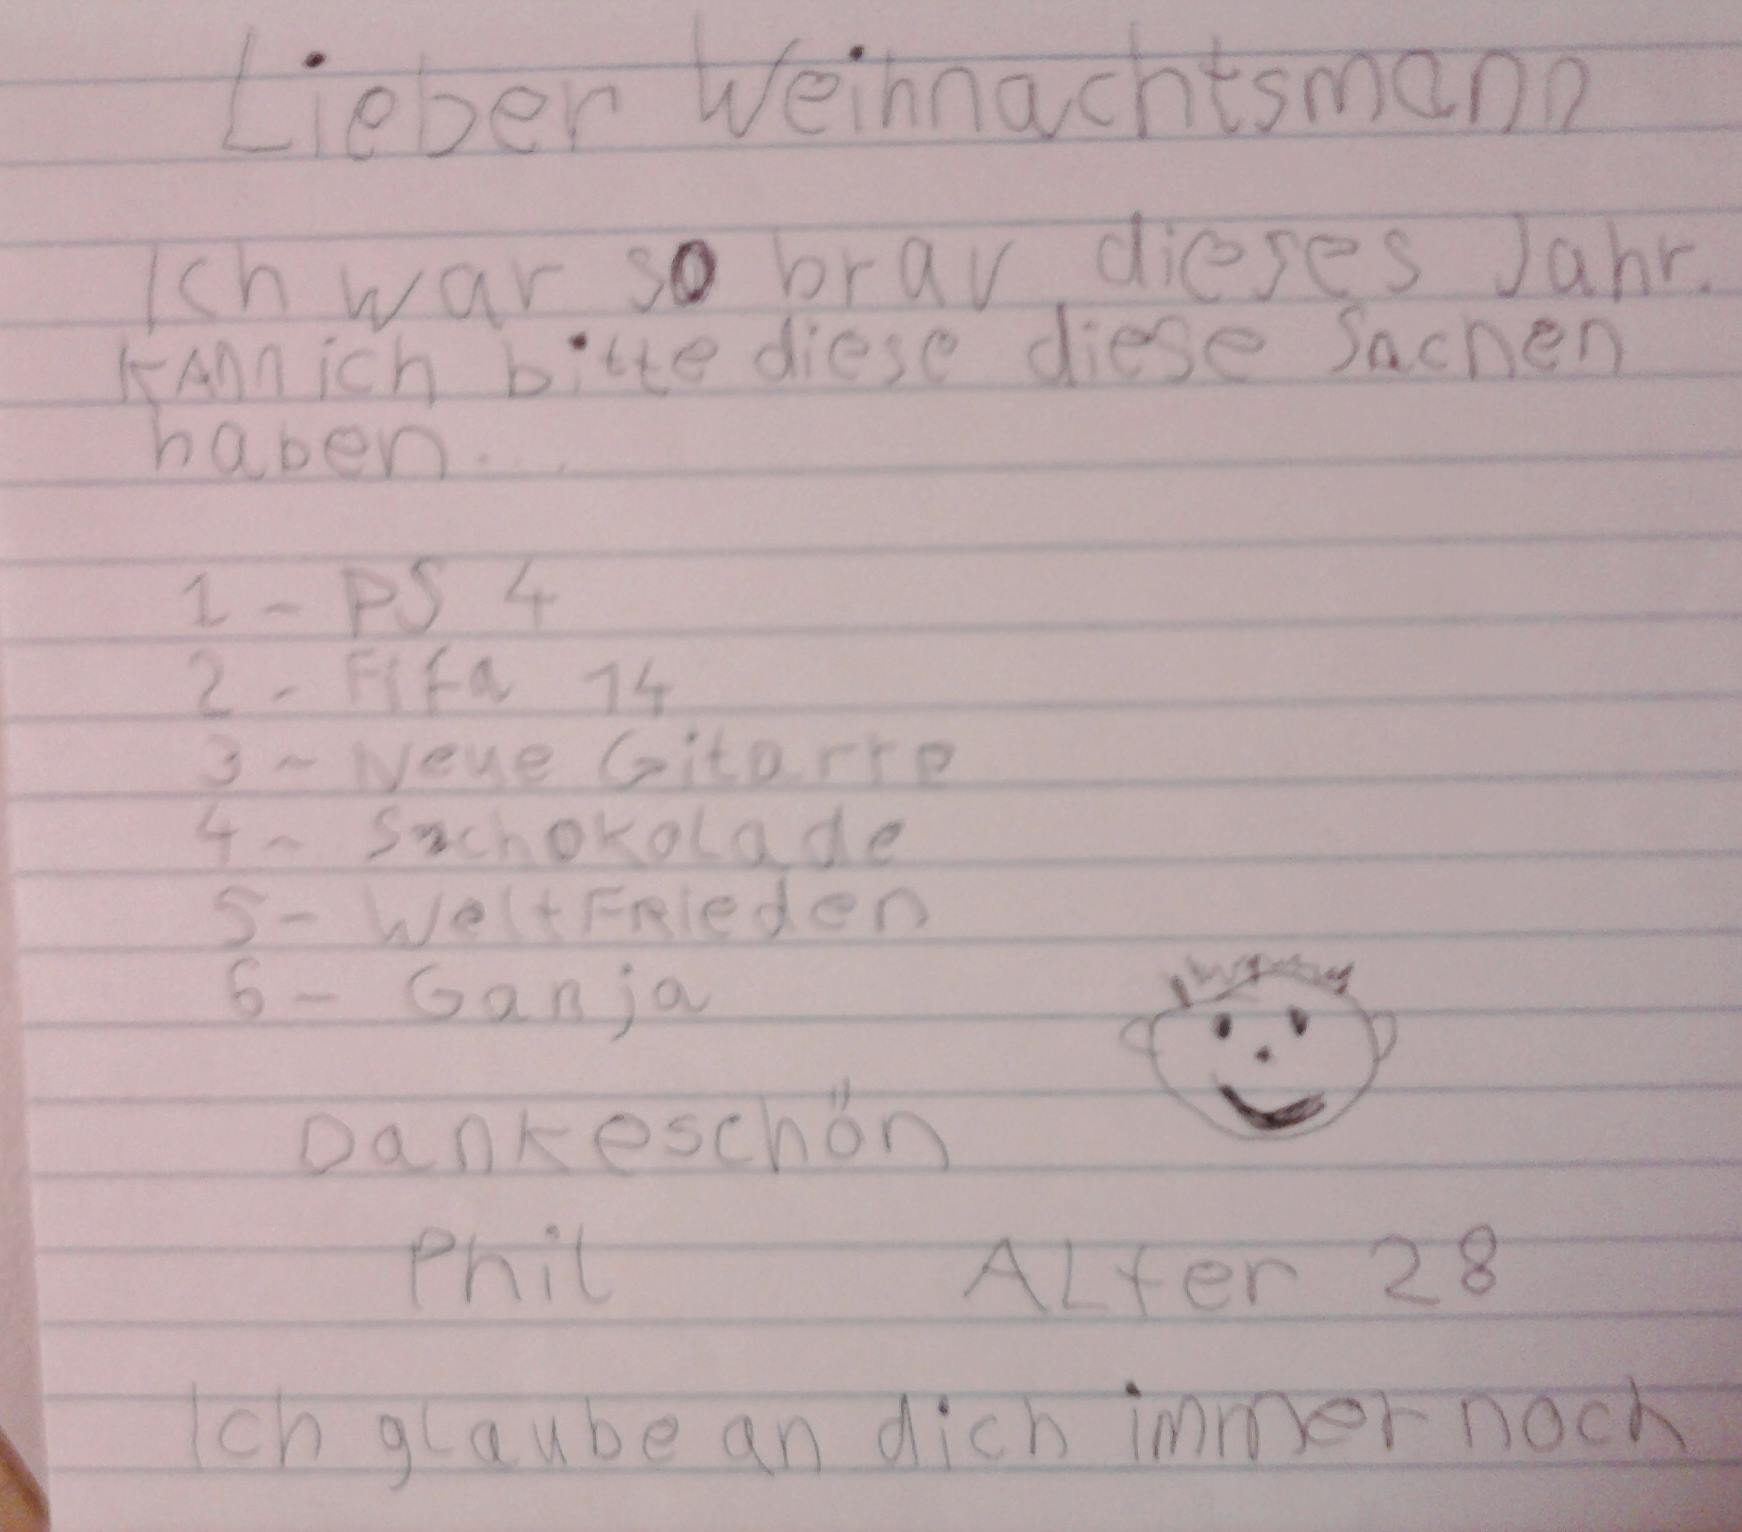 Lieber Weihnachtsmann
Ich war so brav dieses Jahr.
Kann ich bitte diese diese Sachen
haben....
1 - PS 4
2 - Fifa 14
3 - Neue Gitarre
4 - Schokolade
5 - WeltFrieden
6 - Ganja
Dankeschön
Phil Alter 28
Ich glaube an dich immer noch